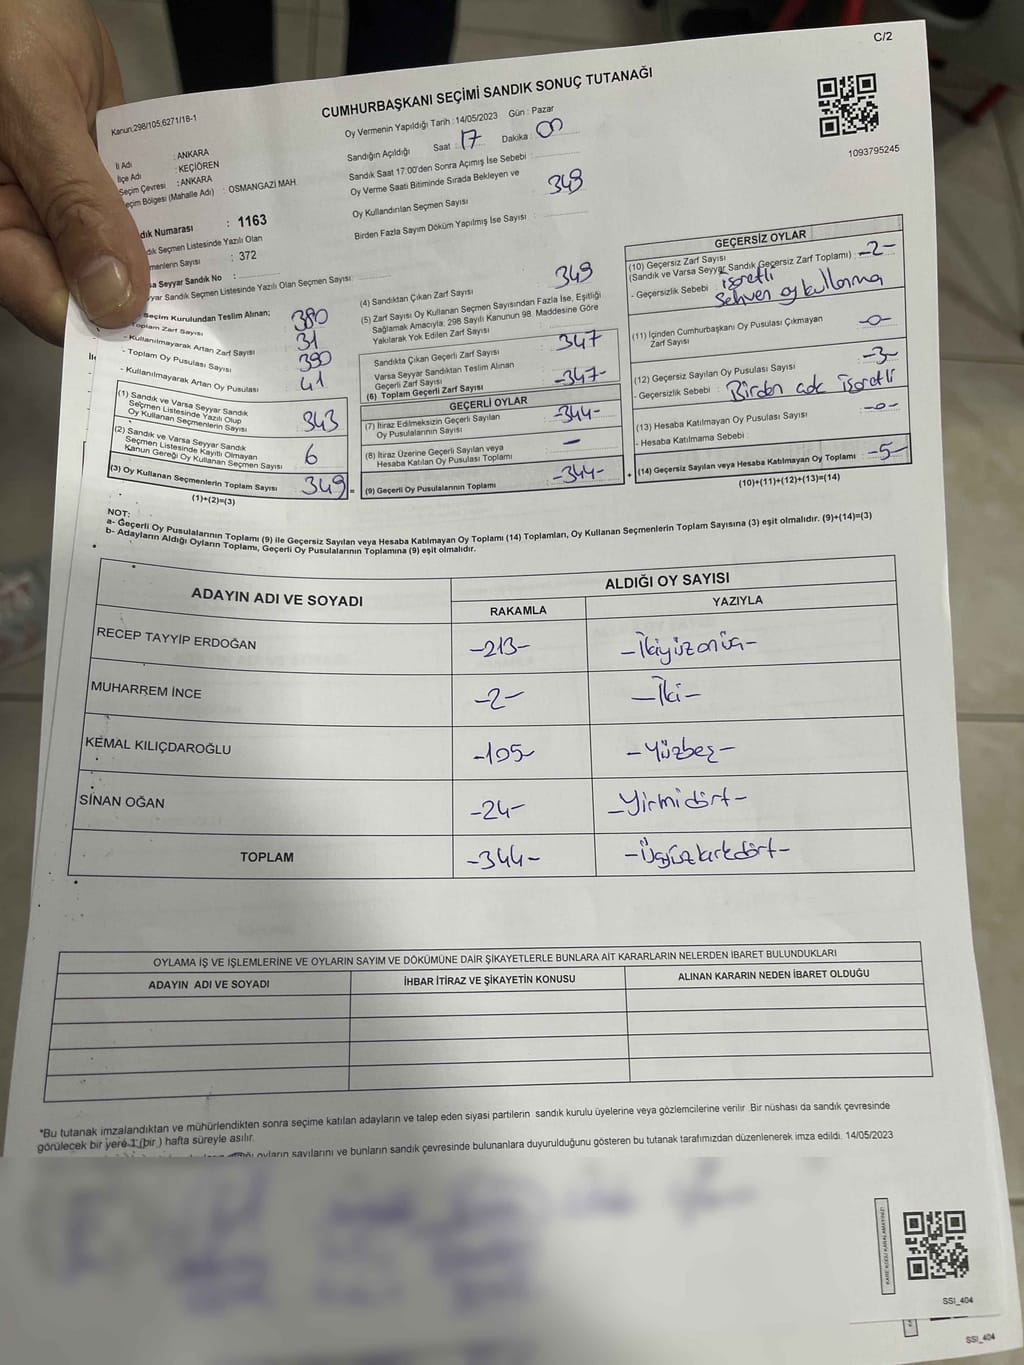 C/2
Kanun;298/105,6271/18-1
CUMHURBAŞKANI SEÇİMİ SANDIK SONUÇ TUTANAĞI
1093795245
İl Adı : ANKARA
İlçe Adı : KEÇİÖREN
Seçim Çevresi : ANKARA
eçim Bölgesi (Mahalle Adı) : OSMANGAZİ MAH.
dık Numarası : 1163
dık Seçmen Listesinde Yazılı Olan
menlerin Sayısı : 372
sa Seyyar Sandık No :
yyar Sandık Seçmen Listesinde Yazılı Olan Seçmen Sayısı:
Oy Vermenin Yapıldığı Tarih : 14/05/2023 Gün : Pazar
Sandığın Açıldığı Saat : 17 Dakika : 00
Sandık Saat 17:00'den Sonra Açımış İse Sebebi :
Oy Verme Saati Bitiminde Sırada Bekleyen ve
Oy Kullandırılan Seçmen Sayısı : 349
Birden Fazla Sayım Döküm Yapılmış İse Sayısı :
Seçim Kurulundan Teslim Alınan;
Toplam Zarf Sayısı 380
- Kullanılmayarak Artan Zarf Sayısı 31
- Toplam Oy Pusulası Sayısı 390
- Kullanılmayarak Artan Oy Pusulası 41
(1) Sandık ve Varsa Seyyar Sandık
Seçmen Listesinde Yazılı Olup
Oy Kullanan Seçmenlerin Sayısı 343
(2) Sandık ve Varsa Seyyar Sandık
Seçmen Listesinde Kayıtlı Olmayan
Kanun Gereği Oy Kullanan Seçmen Sayısı 6
(3) Oy Kullanan Seçmenlerin Toplam Sayısı 349 =
(1)+(2)=(3)
(4) Sandıktan Çıkan Zarf Sayısı 349
(5) Zarf Sayısı Oy Kullanan Seçmen Sayısından Fazla İse, Eşitliği
Sağlamak Amacıyla, 298 Sayılı Kanunun 98. Maddesine Göre
Yakılarak Yok Edilen Zarf Sayısı
Sandıkta Çıkan Geçerli Zarf Sayısı 347
Varsa Seyyar Sandıktan Teslim Alınan
Geçerli Zarf Sayısı
(6) Toplam Geçerli Zarf Sayısı -347-
GEÇERLİ OYLAR
(7) İtiraz Edilmeksizin Geçerli Sayılan
Oy Pusulalarının Sayısı -344-
(8) İtiraz Üzerine Geçerli Sayılan veya
Hesaba Katılan Oy Pusulası Toplamı -
(9) Geçerli Oy Pusulalarının Toplamı -344- +
GEÇERSİZ OYLAR
(10) Geçersiz Zarf Sayısı
(Sandık ve Varsa Seyyar Sandık Geçersiz Zarf Toplamı) -2-
- Geçersizlik Sebebi : işaretli
sehven oy kullanma
(11) İçinden Cumhurbaşkanı Oy Pusulası Çıkmayan
Zarf Sayısı -0-
(12) Geçersiz Sayılan Oy Pusulası Sayısı -3-
- Geçersizlik Sebebi : Birden çok işaretli
(13) Hesaba Katılmayan Oy Pusulası Sayısı -0-
- Hesaba Katılmama Sebebi :
(14) Geçersiz Sayılan veya Hesaba Katılmayan Oy Toplamı -5-
(10)+(11)+(12)+(13)=(14)
NOT:
a- Geçerli Oy Pusulalarının Toplamı (9) ile Geçersiz Sayılan veya Hesaba Katılmayan Oy Toplamı (14) Toplamları, Oy Kullanan Seçmenlerin Toplam Sayısına (3) eşit olmalıdır. (9)+(14)=(3)
b- Adayların Aldığı Oyların Toplamı, Geçerli Oy Pusulalarının Toplamına (9) eşit olmalıdır.
ADAYIN ADI VE SOYADI ALDIĞI OY SAYISI
RAKAMLA YAZIYLA
RECEP TAYYİP ERDOĞAN -213- -İkiyüzonüç-
MUHARREM İNCE -2- -İki-
KEMAL KILIÇDAROĞLU -105- -Yüzbeş-
SİNAN OĞAN -24- -Yirmidört-
TOPLAM -344- -Üçyüzkırkdört-
OYLAMA İŞ VE İŞLEMLERİNE VE OYLARIN SAYIM VE DÖKÜMÜNE DAİR ŞİKAYETLERLE BUNLARA AİT KARARLARIN NELERDEN İBARET BULUNDUKLARI
ADAYIN ADI VE SOYADI İHBAR İTİRAZ VE ŞİKAYETİN KONUSU ALINAN KARARIN NEDEN İBARET OLDUĞU
*Bu tutanak imzalandıktan ve mühürlendikten sonra seçime katılan adayların ve talep eden siyasi partilerin sandık kurulu üyelerine veya gözlemcilerine verilir .Bir nüshası da sandık çevresinde
görülecek bir yere 1 (bir ) hafta süreyle asılır.
oyların sayılarını ve bunların sandık çevresinde bulunanlara duyurulduğunu gösteren bu tutanak tarafımızdan düzenlenerek imza edildi. 14/05/2023
KARE KODU KARALAMAYINIZ!
SSI_404
SSI_404